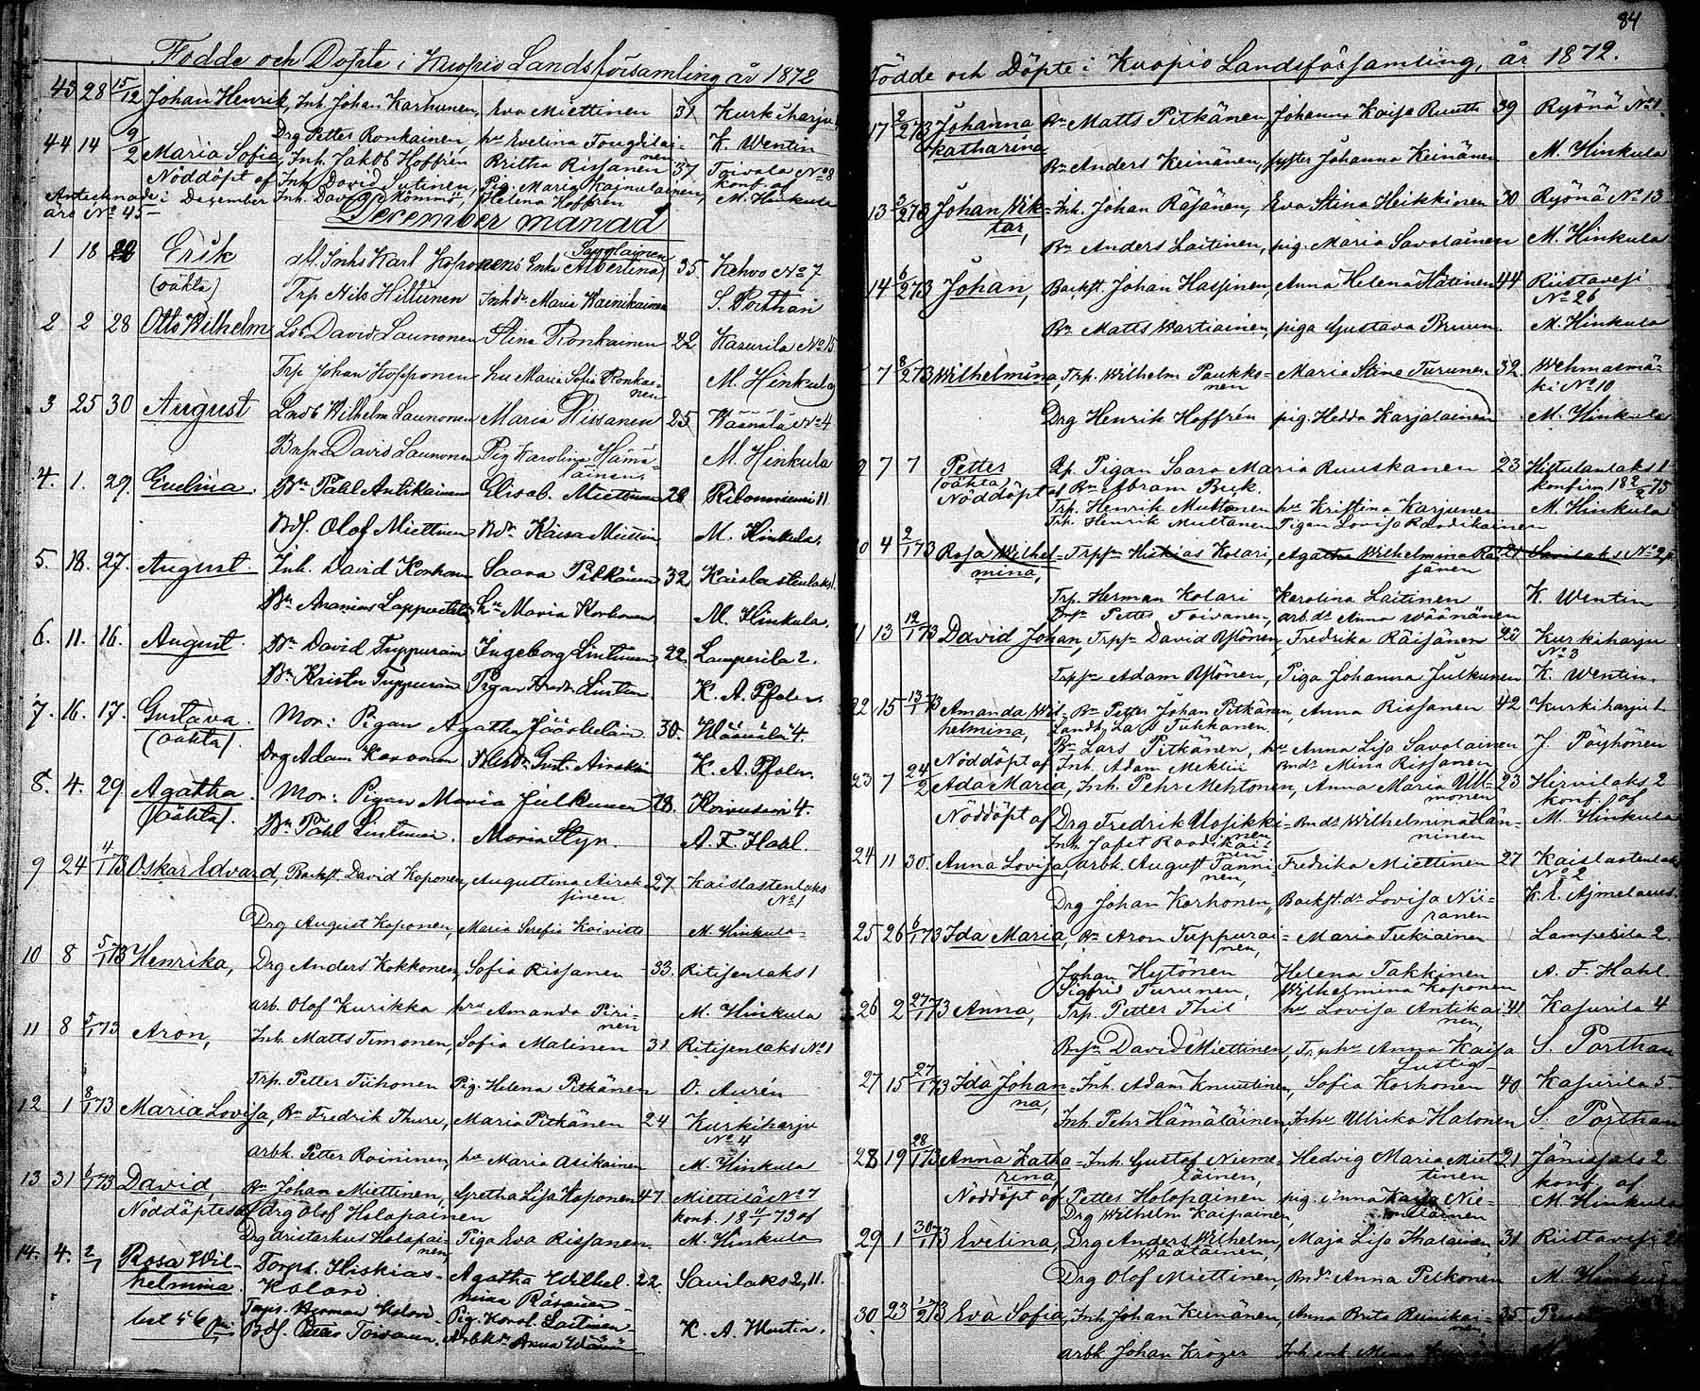 Födde och Döpte i Kuopio Landsförsamling år 1872
43 28 15/12 Johan Henrik, Inh. Johan Karhunen, Eva Miettinen 31 Kurkiharju
Drg Petter Ronkainen, hu Evelina Tougilai- K. Wentin
44 14 9/2 Maria Sofia, Inh. Jakob Hoffrén Britha Rissanen 37 Toivala No 8
Nöddöpt af Inh. David Sutinen, Pig. Maria konf. af
Antecknade i Dezember Inh. Helena Hoffrén M. Hinkula
års No 45
December månad
1 18 22 Erik Inhs Karl Koponens Enka Albertina Savolainen 35 Kehvo No 7
(oäkta) Trp Nils Hiltunen Inhdr Maria Wainikainen S. Porthan
2 2 28 Otto Wilhelm David Launonen Stina Ronkainen 22 Kasurila No 15
Trp Johan Kosponen hu Maria Sofia Ronkai-nen M. Hinkula
3 25 30 August Wilhelm Launonen Maria Rissanen 25 Wäänälä No 4
David Launonen Pig Karolina Hämä-läinen M. Hinkula
4. 1. 29. Evelina. Bn Påhl Antikainen Elisab. Miettinen 28 Ritoniemi 11.
Bdf. Olof Miettinen Bdr Kaisa Miettin M. Hinkula.
5. 18. 27. August. Inh. David Korhonen Saara Pitkänen 32 Kaislastenlaks 1
Bn Ananias hu Maria Korhonen M. Hinkula.
6. 11. 16. August. Bn David Tuppurain Ingeborg Lintunen 22. Lamperila 2.
Bn Krister Tuppurain Pigan Lustin K. A. Pfaler.
7. 16. 17. Gustava. Mor: Pigan Agatha Jääskeläin 30. Wäänälä 4.
(oäkta). Drg Adam Kasonen K. A. Pfaler.
8. 4. 29. Agatha. Mor: Pigan Maria Julkunen 28. Koivusari 4.
(oäkta). Bn Påhl Lintunen. Maria Styn. A. F. Hahl.
9 24 4/1 73 Oskar Edvard, Backst. David Koponen, Augustina Airak-sinen 27 Kaislastenlaks No 1
Drg August Koponen, Maria Serefia Koivitto M. Hinkula
10 8 5/1 73 Henrika, Drg Anders Kokkonen, Sofia Rissanen 33. Ritisenlaks 1
arb. Olof Kurikka hu Amanda Piri-nen M. Hinkula
11 8 5/1 73 Aron, Inh. Matts Timonen, Sofia Malinen 31 Ritisenlaks No 1
Trp. Petter Tiihonen Pig. Helena Pitkänen O. Aurén
12 1 8/1 73 Maria Lovisa, Bn Fredrik Thure, Maria Pitkänen 24 Kurkiharju No 4
arbk. Petter Roininen, hu Maria Asikainen M. Hinkula
13 31 6/1 73 David, Bn Johan Miettinen, Gretha Lisa Koponen 47. Miettilä No 7
Nöddöptes af drg Olof Holopainen konf. 18 11/1 73 af
Drg Aristarkus Holopai-nen, Piga Eva Rissanen. M. Hinkula
14. 4. 2/1 Rosa Wil-helmina Torps. Hiskias Kolari Agatha Wilhel-mina Räsänen 22. Savilaks 2, 11.
Torps. Herman Kolari Pig. Karol. Laitinen
Bdf. Petter Toivanen. Arbkdr Anna K. A. Wentin.
84
Födde och Döpte i Kuopio Landsförsamling, år 1872.
17 2/2 73 Johanna Katharina Bn Matts Pitkänen, Johanna Kaisa Ruuth 39 Ryönä No 1
Bn Anders Keinänen, syster Johanna Keinänen M. Hinkula
13 3/2 73 Johan Vik-tor, Inh. Johan Räsänen, Eva Stina Heikkinen 30 Ryönä No 13
Bn Anders Laitinen, pig. Maria Savolainen M. Hinkula
14 6/2 73 Johan, Backst. Johan Haspinen, Anna Helena Hätinen 44 Riistavesi No 26
Bn Matts Wartiainen, piga Gustava Bruun. M. Hinkula
7 8/2 73 Wilhelmina, Trp. Wilhelm Paukko-nen Maria Stina Turunen 32. Wehmasmä-ki No 10
Drg Henrik Hoffrén pig. Hedda Karjalainen M. Hinkula
7 7 Petter (oäkta) Pigan Saara Maria Ruuskanen 23 konfirm. 18 2/2 73
Nöddöpt af Bn Abram Buck.
Trp. Henrik Muttonen hu Kristina Karjunen M. Hinkula
Trp. Henrik Multanen Pigan Lovisa Raudikainen
20 4 2/1 73 Rosa Wilhel-mina, Trpsn Hiskias Kolari, Agatha Wilhelmina Rä-sänen 21 Savilaks No 2
Trp. Herman Kolari Karolina Laitinen K. Wentin
Petter Toivanen, arbdr Anna Wäänänen
21 13 12/1 73 David Johan, Trpsn David Ylönen, Fredrika Räisänen 20 Kurkiharju No 3
Trpsn Adam Ylönen, Piga Johanna Julkunen K. Wentin.
22 15 13/1 73 Amanda Wil-helmina, Bn Petter Johan Pitkänen, Anna Rissanen 42 Kurkiharju 1
Nöddöpt af Bn Lars Pitkänen, hu Anna Lisa Savolainen J. Pöyhönen
Inh. Adam Meklin Bndr Mina Rissanen
23 7 24/2 Ada Maria, Inh. Pehr Mehtonen, Anna Maria Ut-monen 23 Hirvilaks 2
Nöddöpt af Drg Fredrik Ulosikki-nen Bndr Wilhelmina Hän-ninen konf. af M. Hinkula
24 11 30. Anna Lovisa, arbk. August Tanni-nen, Fredrika Miettinen 27 Kaislastenlaks No 2
Drg Johan Korhonen, Backst.dr Lovisa Nii-ranen
25 26 6/1 73 Ida Maria, Bn Aron Tuppurai-nen, Maria Tukiainen Lamperila 2.
Johan Hytönen Helena Takkinen A. F. Hahl.
Sigfrid Turunen, Wilhelmina Koponen
26 2 27/1 73 Anna, Trp. Petter Thil hu Lovisa Antikai-nen, 41 Kasurila 4
David Miettinen, Anna Kaisa Lustig S. Porthan
27 15 27/1 73 Ida Johan-na, Inh. Adam Knuutinen, Sofia Korhonen 40 Kasurila 5.
Inh. Pehr Hämäläinen, Inhu Ulrika Halonen S. Porthan
28 19 28/1 73 Anna Katha-rina, Inh. Gustaf Nieme-läinen, Hedvig Maria Miet-tinen 21 Jänissalo 2
Nöddöpt af Petter Holopainen pig. Anna Kaisa konf. af
Drg Wilhelm Kaipainen, M. Hinkula
29 1 30/1 73 Evelina, Drg Anders Wilhelm Maja Lisa 31 Riistavesi
Drg Olof Miettinen, Bndr Anna Pelkonen M. Hinkula
30 23 1/2 73 Eva Sofia, Inh. Johan Keinänen, Anna Brita 35
arbk Johan Kroger